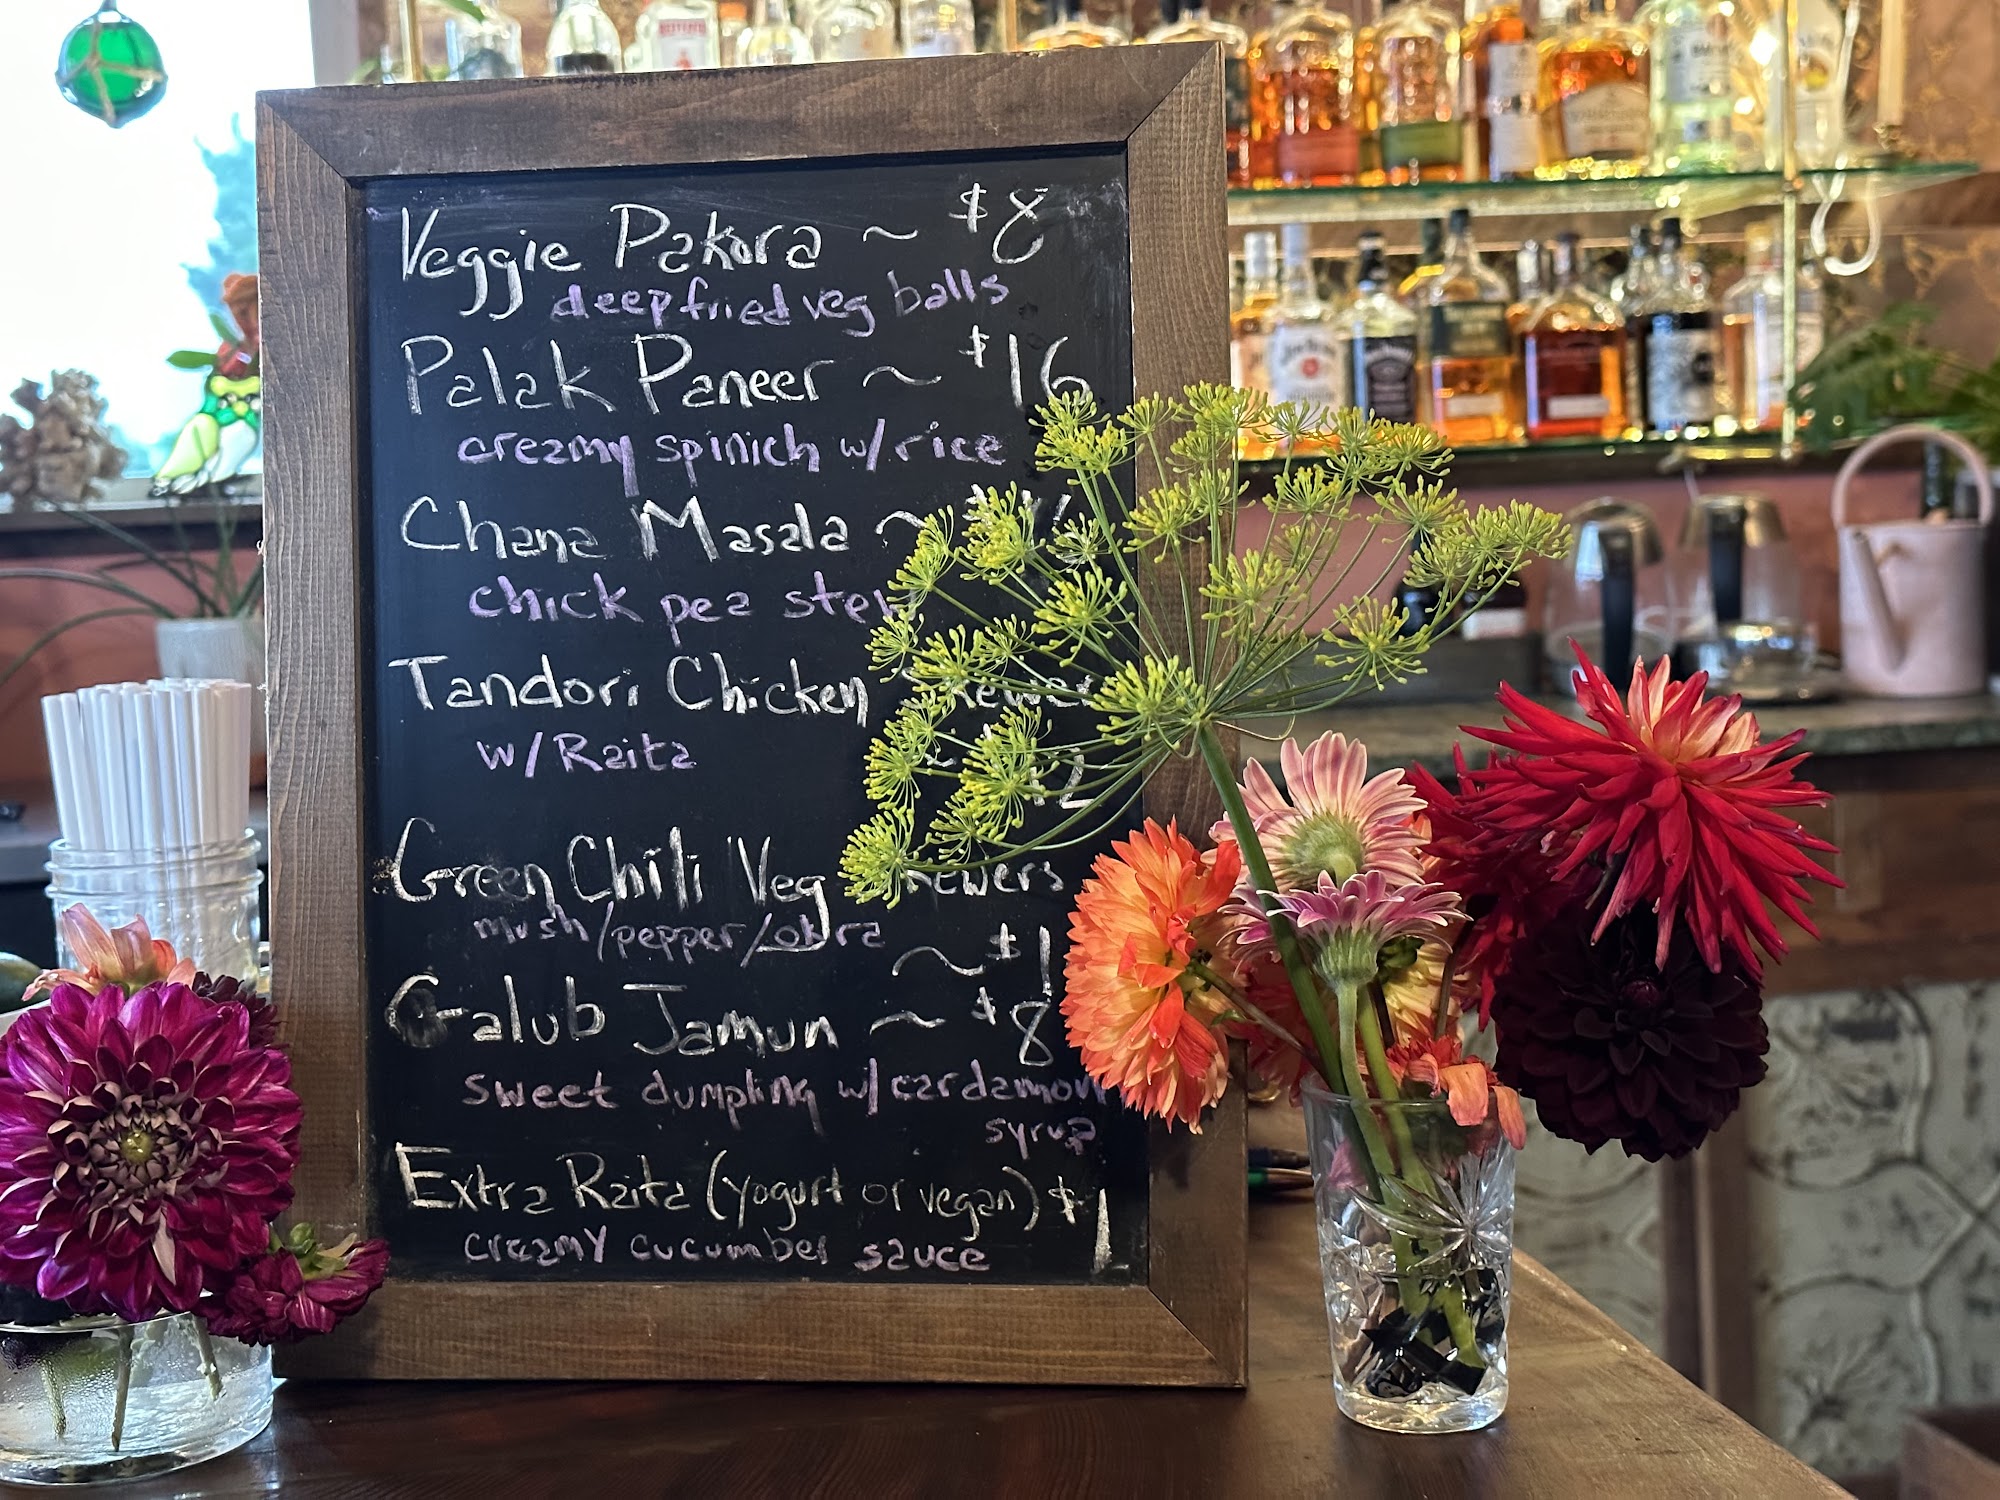 Veggie Pakora ~ $8
deep fried veg balls
Palak Paneer ~ $16
creamy spinich w/rice
Chana Masala ~
chick pea stew
Tandori Chicken
w/Raita
Green Chili Veg
mush/pepper/okra
Galub Jamun ~ $8
sweet dumpling w/cardamom
syrup
Extra Raita (yogurt or vegan) $1
creamy cucumber sauce